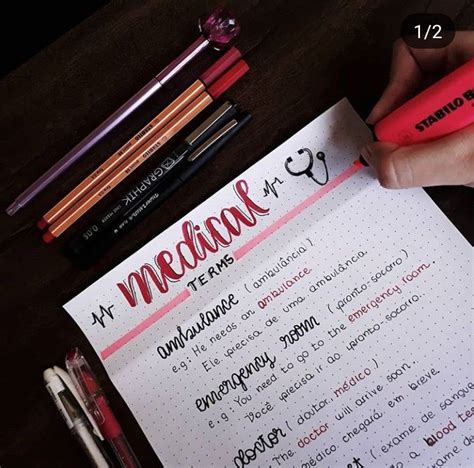 1/2
STABILO B
GRAPHIK
0.05
medical
TERMS
ambulance (ambulância)
e.g: He needs an ambulance
Ele precisa de uma ambulância
emergency room (pronto-socorro)
e.g: You need to go to the emergency room.
Você precisa ir ao pronto-socorro.
doctor (doutor, médico)
The doctor will arrive soon.
médico chegará em breve.
(exame de sangue
a blood test
exame de